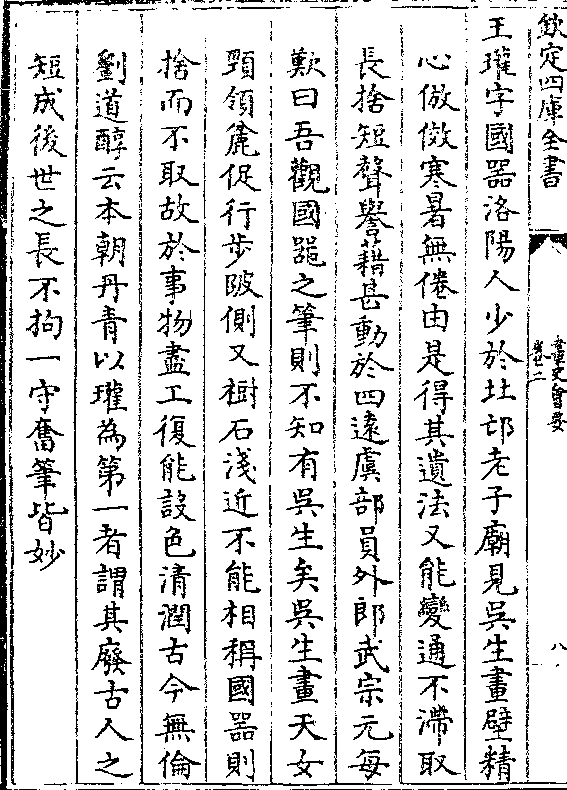 欽定四庫全書
畫史會要
卷二
八
王瓘字國器洛陽人少於北邙老子廟見吳生畫壁精
心倣傚寒暑無倦由是得其遺法又能變通不滯取
長捨短聲譽藉甚動於四遠虞部員外郎武宗元每
歎曰吾觀國器之筆則不知有吳生矣吳生畫天女
頸領麄促行步陂側又樹石淺近不能相稱國器則
捨而不取故於事物盡工復能設色清潤古今無倫
劉道醇云本朝丹青以瓘為第一者謂其廢古人之
短成後世之長不拘一守奮筆皆妙